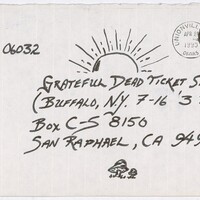 06032
UNIONVILLE
APR
GRATEFUL DEAD TICKET S
(BUFFALO, N.Y. 7-16 '3
BOX C-S 8150
SAN RAPHAEL, CA 949